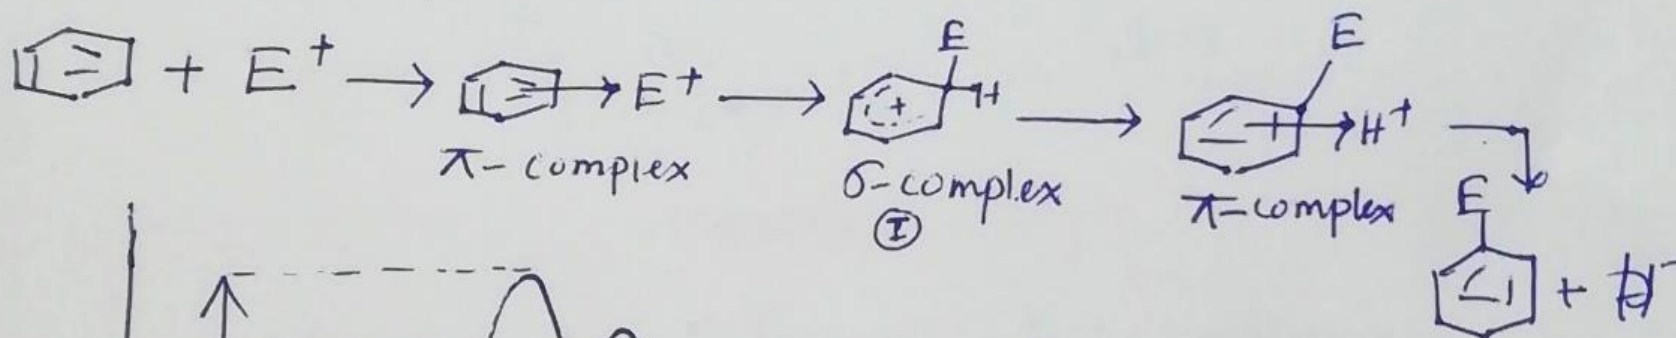 + E⁺ → → E⁺ → E H + → E → H⁺
π-complex σ-complex π-complex
I
E
+